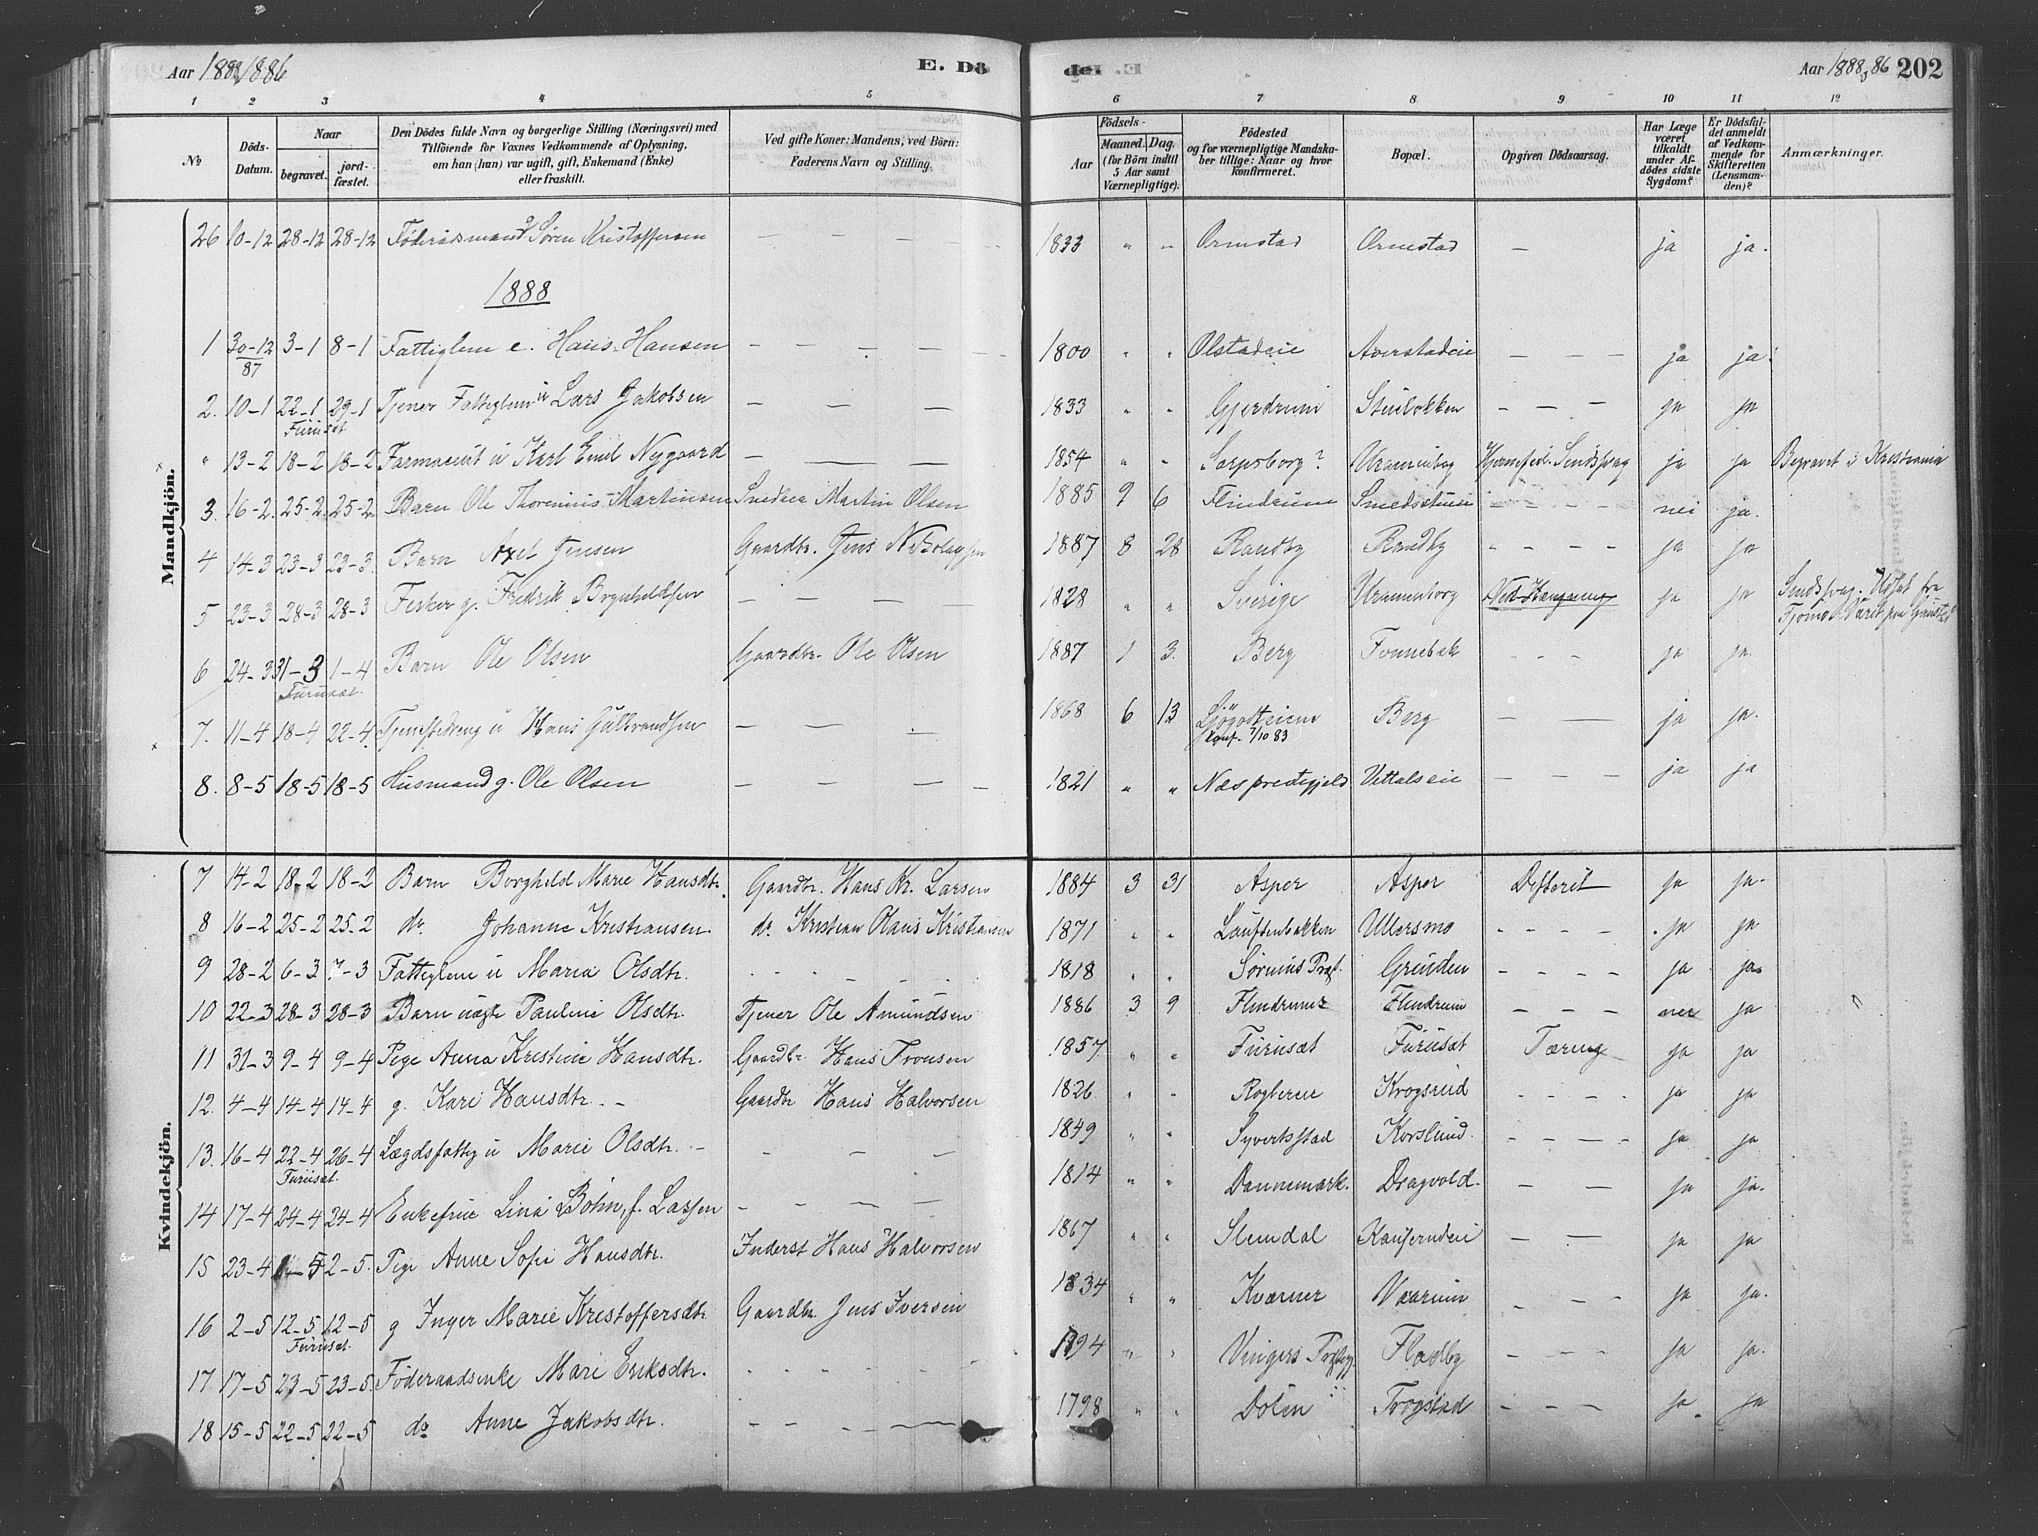 Aar 1888/1886 E. Dö
der. E. Aar 1888, 86 202
1 2 3 4 5 6 7 8 9 10 11 12
No
Döds-Datum.
Naar
begravet.
jord-fæstet.
Den Dödes fulde Navn og borgerlige Stilling (Næringsvei) med
Tilföiende for Voxnes Vedkommende af Oplysning,
om han (hun) var ugift, gift, Enkemand (Enke)
eller fraskilt.
Ved gifte Koner: Mandens, ved Börn:
Faderens Navn og Stilling.
Födsels-
Aar
Maaned. Dag.
(for Börn indtil
5 Aar samt
Værnepligtige).
Födested
og for værnepligtige Mandska-
ber tillige: Naar og hvor
konfirmeret.
Bopæl.
Opgiven Dödsaarsag.
Har Læge
været
tilkaldt
under Af-
dödes sidste
Sygdom?
Er Dödsfal-
det anmeldt
af Vedkom-
mende for
Skifteretten
(Lensman-
den)?
Anmærkninger.
Mandkjön.
26 10-12 28-12 28-12 Föderaadsmand g Sören Kristoffersen — — — 1833 " " Ormstad Ormstad — ja ja.
1888
1 30-12/87 3-1 8-1 Fattiglem e. Hans Hansen — — — — 1800 " " Olstadeie Averstadeie — — — ja ja.
2. 10-1 22-1 29-1 Tjener Fattiglem u Lars Jakobsen — — — 1833 " " Gjerdrum Stuibakken — — — ja ja
Furuset
" 13-2 18-2 18-2 Farmaceut u Karl Emil Nygaard — — — 1854 " " Sarpsborg? Uranienborg Sindssyag ja ja Begravet i Kristiania
3. 16-2 25-2 25-2 Barn Ole Thorenius Martinsen Snedker Martin Olsen 1885 9 6 Flindrum Smedsstuen — — — — nei ja.
4 14-3 23-3 23-3 Barn Axel Jensen Gaardbr. Jens Nikolaysen 1887 8 28 Randby Randby - - - - ja ja
5 23-3 28-3 28-3 Fisker g. Fredrik Brynhildsen — — — — 1828 " " Sverige Uranienborg Ved Hængning ja ja Sindssyag. Udsat fra
6 24-3 31-3 1-4 Barn Ole Olsen Gaardbr. Ole Olsen 1887 1 3. Berg Fonnebæk - - - ja ja.
Furuset.
7. 11-4 18-4 22-4 Tjenestedreng u Hans Gulbrandsen — — — 1868 6 13 Berg — — ja ja.
konf. 7/10 83
8. 8-5 18-5 18-5 Husmand g. Ole Olsen — — — — 1821 " " Næs prestegjeld Vettalseie — — — ja ja
Kvindekjön.
7 14-2 18-2 18-2 Barn Borghild Marie Hansdtr. Gaardbr. Hans Kr. Larsen 1884 3 31 Asper Asper Difterit ja ja.
8 16-2 25-2 25-2 do. Johanne Kristiansen. do. Kristian Olaus Kristiansen 1871 " " Lauftenbakken Ullersmo - - - - ja ja
9 28-2 6-3 7-3 Fattiglem u Maria Olsdtr. - - - - 1818 " " Sørums Præst. Grinden - - - - ja ja
10 22-3 28-3 28-3 Barn uægte Pauline Olsdtr. Tjener Ole Amundsen 1886 3 9 Flindrum Flindrum - - - - nei ja
11 31-3 9-4 9-4 Pige Anna Kristine Hansdtr. Gaardbr Hans Tronsen 1857 " " Furuset Furuset Tæring ja ja
12. 4-4 14-4 14-4 g. Kari Hansdtr. - - Gaardbr Hans Halvorsen 1826 " " Rogtereie Krogsrud - - - - ja ja
13. 16-4 22-4 26-4 Lægdsfattig u Marie Olsdtr. - - - - 1849 " " Syvertsstad Korslund. - - - - ja ja
Furuset.
14 17-4 24-4 24-4 Enkefrue Lina Bohn, f. Lassen — — — — 1814 " " Dannemark. Dragvold. — — ja ja.
15 23-4 1-5 2-5. Pige Anne Sofie Hansdtr. Inderst Hans Halvorsen 1867 " " Slemdal — — ja ja
16 2-5 12-5 12-5 g Inger Marie Kristoffersdtr Gaardbr. Jens Iversen 1834 " " Kværner Vaarum - - - ja ja.
Furuset.
17 17-5 23-5 23-5. Föderaadsenke Mari Eriksdtr. - - - - 1794 " " Vingers Præstgj. Fladby - - - ja ja.
18 15-5 22-5 22-5 do Anne Jakobsdtr. — — — — 1798 " " Dölin Trogstad - - - - ja. ja